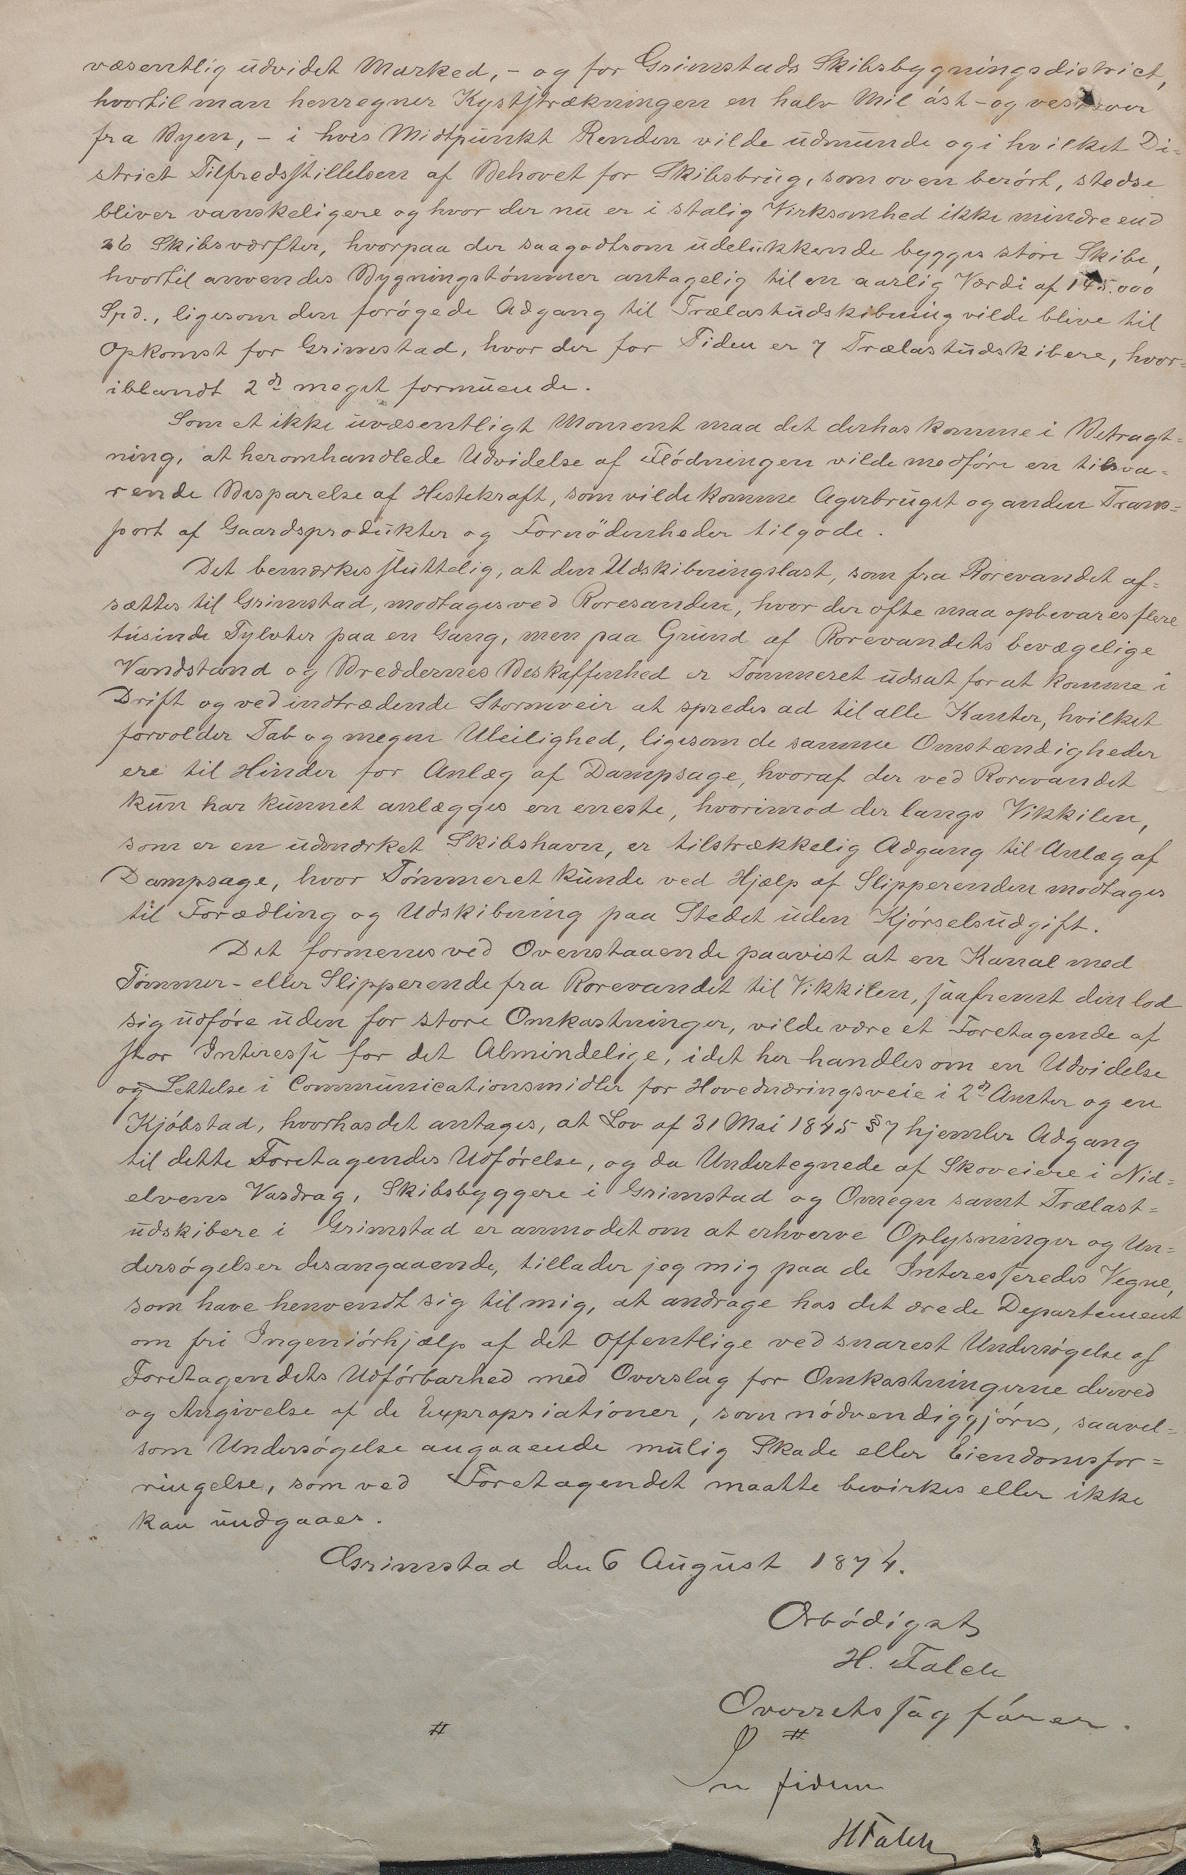 væsentlig udvidet Marked, - og for Grimstads Skibsbygningsdistrict,
hvortil man henregner Kyststrækningen en halv Mil øst- og vestover
fra Byen, - i hvis Midtpunkt Renden vilde udmunde og i hvilket Di=
strict Tilfredsstillelsen af Behovet for Skibsbrug, som oven berørt, stedse
bliver vanskeligere og hvor der nu er i stadig Virksomhed ikke mindre end
26 Skibsværfter, hvorpaa der saagodtsom udelukkende bygges store Skibe,
hvortil anvendes Bygningstømmer antagelig til en aarlig Værdi af 145.000
Spd., ligesom den forøgede Adgang til Trælastudskibning vilde blive til
Opkomst for Grimstad, hvor der for Tiden er 7 Trælastudskibere, hvor=
iblandt 2de meget formuende.
Som et ikke uvæsentligt Moment maa det derhos komme i Betragt=
ning, at heromhandlede Udvidelse af Flødningen vilde medføre en tilsva=
rende Besparelse af Hestekraft, som vilde komme Agerbruget og anden Trans=
port af Gaardsprodukter og Fornödenheder tilgode.
Det bemærkes sluttelig, at den Udskibningslast, som fra Rorevandet af=
sættes til Grimstad, modtages ved Roresanden, hvor der ofte maa opbevares flere
tusinde Tylvter paa en Gang, men paa Grund af Rorevandets bevægelige
Vandstand og Breddernes Beskaffenhed er Tømmeret udsat for at komme i
Drift og ved indtrædende Stormveir at spredes ad til alle Kanter, hvilket
forvolder Tab og megen Uleilighed, ligesom de samme Omstændigheder
ere til Hinder for Anlæg af Dampsage, hvoraf der ved Rorevandet
kun har kunnet anlægges en eneste, hvorimod der langs Vikkilen,
som er en udmærket Skibshavn, er tilstrækkelig Adgang til Anlæg af
Dampsage, hvor Tømmeret kunde ved Hjælp af Slipperenden modtages
til Forædling og Udskibning paa Stedet uden Kjørselsudgift.
Det formenes ved Ovenstaaende paavist at en Kanal med
Tømmer- eller Slipperende fra Rorevandet til Vikkilen, saafremt den lod
sig udføre uden for store Omkostninger, vilde være et Foretagende af
stor Interesse for det Almindelige, idet her handles om en Udvidelse
og Lettelse i Communicationsmidler for Hovednæringsveie i 2de Amter og en
Kjøbstad, hvorhos det antages, at Lov af 31 Mai 1845 § 7 hjemler Adgang
til dette Foretagendes Udførelse, og da Undertegnede af Skoveiere i Nid=
elvens Vasdrag, Skibsbyggere i Grimstad og Omegn samt Trælast=
udskibere i Grimstad er anmodet om at erhverve Oplysninger og Un=
dersøgelser desangaaende, tillader jeg mig paa de Interesseredes Vegne,
som have henvendt sig til mig, at andrage hos det ærede Departement
om fri Ingeniørhjælp af det Offentlige ved snarest Undersøgelse af
Foretagendets Udførbarhed med Overslag for Omkostningerne derved
og Angivelse af de Expropriationer, som nødvendiggjøres, saavel=
som Undersøgelse angaaende mulig Skade eller Eiendomsfor=
ringelse, som ved Foretagendet maatte bevirkes eller ikke
kan undgaaes.
Grimstad den 6 August 1874.
Ærbødigst
H. Falch
Overretssagfører.
In fidem
HFalch